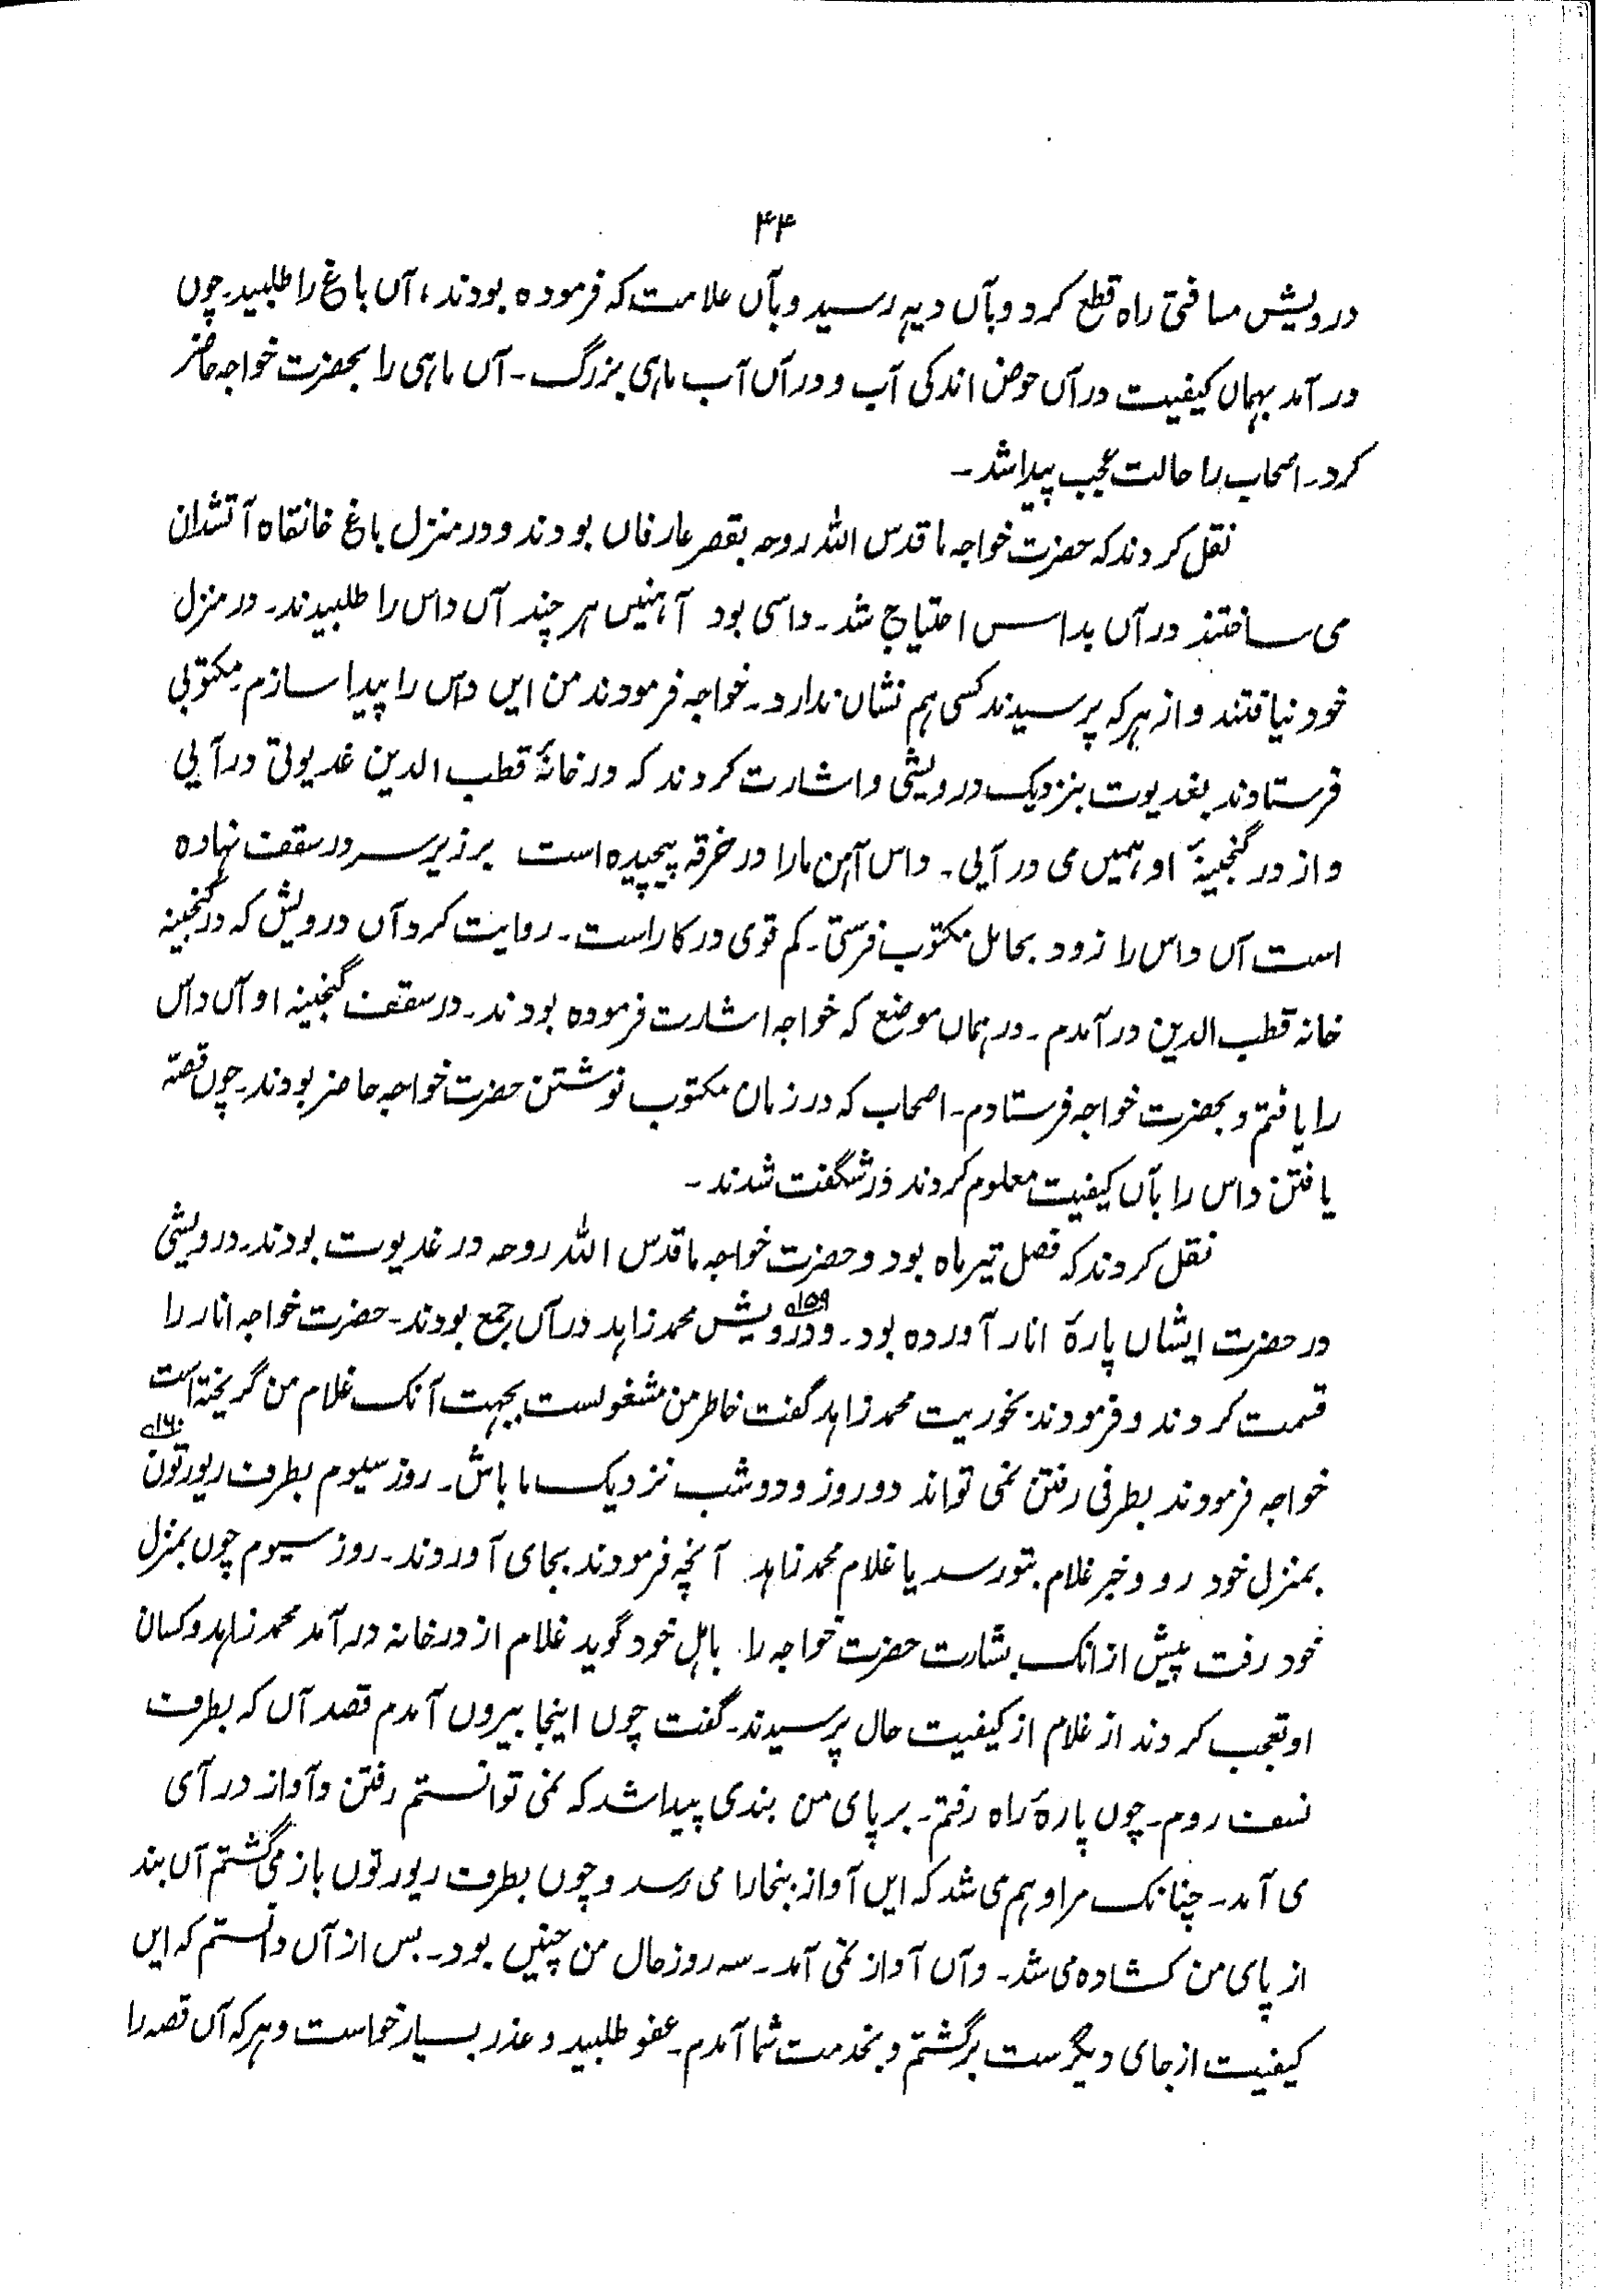 ۴۴
درویش مسافتی راه قطع کرد و بآں دیہہ رسید و بآں علامت که فرموده بودند، آں باغ را طلبید۔ چوں
در آمد بہماں کیفیت در آں حوض اندکی آب و در آں آب ماہی بزرگ۔ آں ماہی را بحضرت خواجہ حاضر
کرد۔ اصحاب را حالت عجب پیدا شد۔
نقل کردند که حضرت خواجہ ما قدس اللہ روحہ بقصر عارفاں بودند و در منزل باغ خانقاہ آتشدان
می ساختند در آں بداس احتیاج شد۔ داسی بود آہنیں ہر چند آں داس را طلبیدند۔ در منزل
خود نیافتند و از ہر که پرسیدند کسی ہم نشان ندارد۔ خواجہ فرمودند من ایں داس را پیدا سازم۔ مکتوبی
فرستادند بغدیوت بنزدیک درویشی و اشارت کردند که در خانۂ قطب الدین غدیوتی در آیی
و از در گنجینۂ او ہمیں می در آیی۔ داس آہن مارا در خرقہ پیچیده است بر زیر سر در سقف نہاده
است آں داس را زود بحامل مکتوب فرستی۔ کم قوی در کار است۔ روایت کرد آں درویش که در گنجینہ
خانہ قطب الدین در آمدم۔ در ہماں موضع که خواجہ اشارت فرموده بودند۔ در سقف گنجینہ او آں داس
را یافتم و بحضرت خواجہ فرستادم۔ اصحاب که در زمان مکتوب نوشتن حضرت خواجہ حاضر بودند۔ چوں قصۂ
یافتن داس را بآں کیفیت معلوم کردند در شگفت شدند۔
نقل کردند که فصل تیر ماه بود و حضرت خواجہ ما قدس اللہ روحہ در غدیوت بودند۔ درویشی
در حضرت ایشاں پارۂ انار آورده بود۔ و درویش محمد زاہد در آں جمع بودند۔ حضرت خواجہ انار را
قسمت کردند و فرمودند بخوریت محمد زاہد گفت خاطر من مشغولست بجہت آنک غلام من گریختہ است
خواجہ فرمودند بطرفی رفتن نمی تواند دو روز و دو شب نزدیک ما باش۔ روز سیوم بطرف ریورتون
بمنزل خود رو و خبر غلام بتو رسد یا غلام محمد زاہد آنچہ فرمودند بجای آوردند۔ روز سیوم چوں بمنزل
خود رفت پیش از انک بشارت حضرت خواجہ را باہل خود گوید غلام از در خانہ در آمد محمد زاہد و کسان
او تعجب کردند از غلام از کیفیت حال پرسیدند۔ گفت چوں اینجا بیروں آمدم قصد آں که بطرف
نسف روم۔ چوں پارۂ راه رفتم۔ بر پای من بندی پیدا شد که نمی توانستم رفتن و آواز در آی
می آمد۔ چنانک مرا وہم می شد که ایں آواز بنحارا می رسد و چوں بطرف ریورتوں باز می گشتم آں بند
از پای من کشاده می شد۔ و آں آواز نمی آمد۔ سہ روز حال من چنیں بود۔ بس از آں دانستم که ایں
کیفیت از جای دیگرست برگشتم و بخدمت شما آمدم۔ عفو طلبید و عذر بسیار خواست و ہر که آں قصہ را